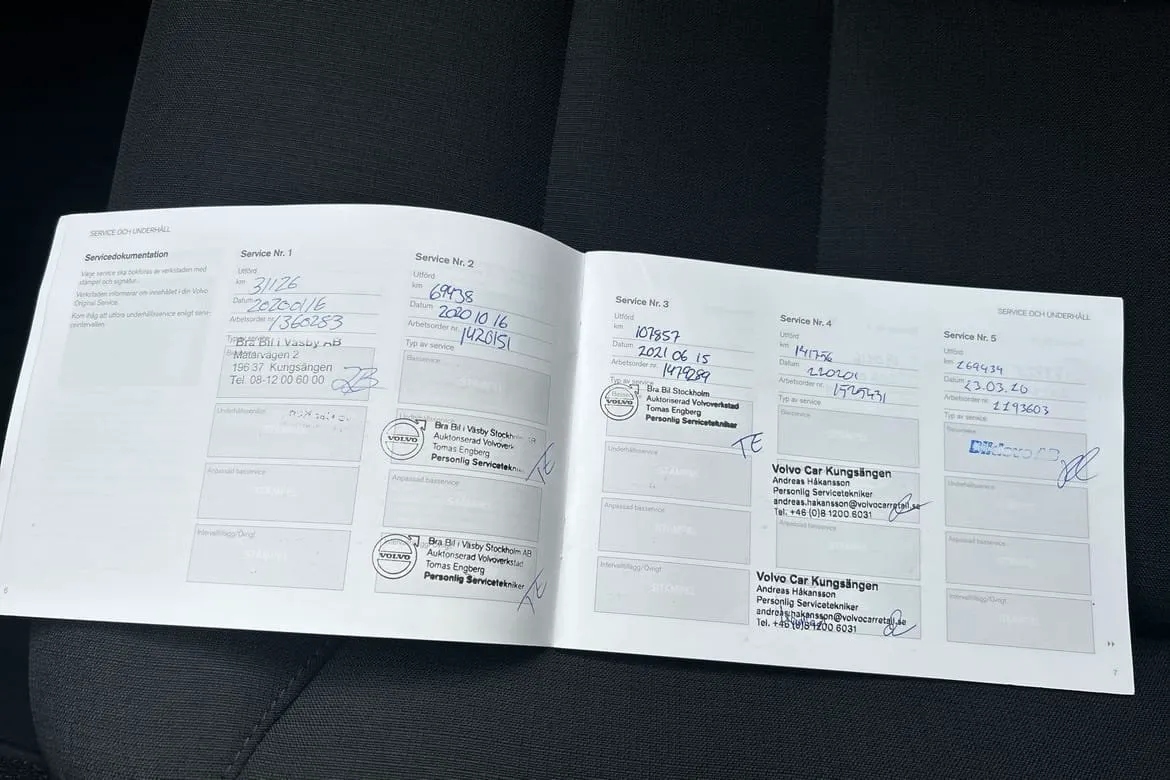 SERVICE OCH UNDERHÅLL
Servicedokumentation
Varje service ska bokföras av verkstaden med
stämpel och signatur.
Verkstaden informerar om innehållet i din Volvo
Original Service.
Kom ihåg att utföra underhållsservice enligt serv-
iceintervallen.
6
Service Nr. 1
Utförd
km 31126
Datum 20200116
Arbetsorder nr. 1360283
Typ av service
Bra Bil i Väsby AB
Mätarvägen 2
196 37 Kungsängen
Tel. 08-12 00 60 00
Underhållsservice
Anpassad basservice
STÄMPEL
Intervalltillägg/Övrigt
STÄMPEL
Service Nr. 2
Utförd
km 69438
Datum 2020 10 16
Arbetsorder nr. 1420151
Typ av service
Basservice
STÄMPEL
VOLVO
Bra Bil i Väsby Stockholm AB
Auktoriserad Volvoverk
Tomas Engberg
Personlig Servicetekni
TE
Anpassad basservice
STÄMPEL
VOLVO
Bra Bil i Väsby Stockholm AB
Auktonserad Volvoverkstad
Tomas Engberg
Personlig Servicetekniker
TE
Service Nr. 3
Utförd
km 107857
Datum 2021 06 15
Arbetsorder nr. 1479289
Typ av service
VOLVO
Bra Bil Stockholm
Auktonserad Volvoverkstad
Tomas Engberg
Personlig Servicetekniker
TE
Underhållsservice
STÄMPEL
Anpassad basservice
STÄMPEL
Intervalltillägg/Övrigt
STÄMPEL
SERVICE OCH UNDERHÅLL
Service Nr. 4
Utförd
km 141756
Datum 220201
Arbetsorder nr.
Typ av service
Basservice
STÄMPEL
Volvo Car Kungsängen
Andreas Håkansson
Personlig Servicetekniker
andreas.hakansson@volvocarretail.se
Tel. +46 (0)8 1200 6031
Anpassad basservice
STÄMPEL
Volvo Car Kungsängen
Andreas Håkansson
Personlig Servicetekniker
andreas.hakansson@volvocarretail.se
Tel. +46 (0)8 1200 6031
Service Nr. 5
Utförd
km 169434
Datum 23.03.20
Arbetsorder nr. 2193603
Typ av service
Basservice
AB
Underhållsservice
STÄMPEL
Anpassad basservice
STÄMPEL
Intervalltillägg/Övrigt
STÄMPEL
7